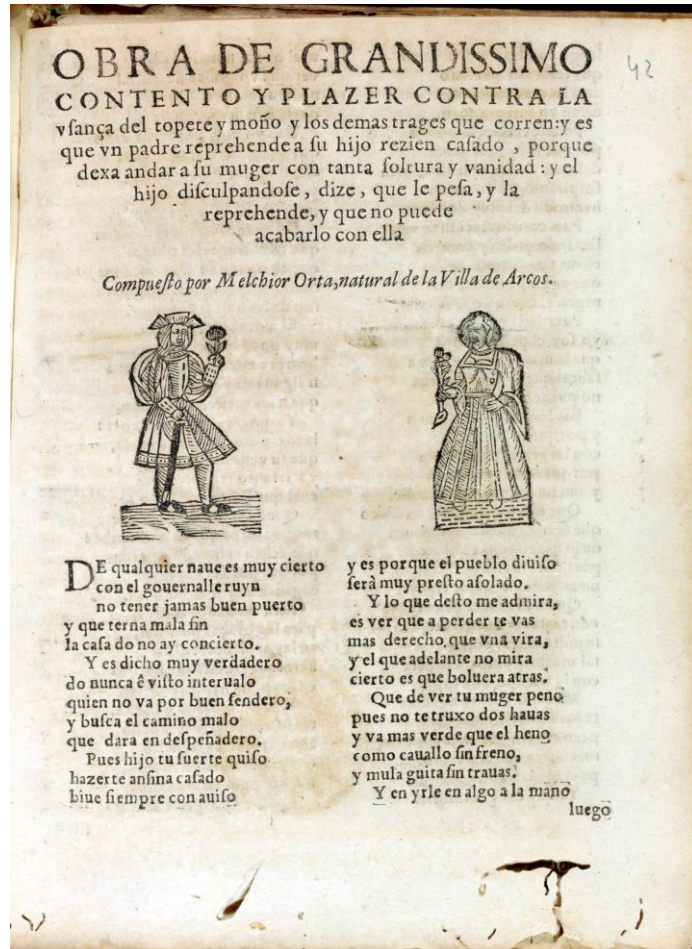 42
OBRA DE GRANDISSIMO
CONTENTO Y PLAZER CONTRA LA
vſança del topete y moño y los demas trages que corren: y es
que vn padre reprehende a ſu hijo rezien caſado , porque
dexa andar a ſu muger con tanta ſoltura y vanidad : y el
hijo diſculpandoſe , dize , que le peſa, y la
reprehende, y que no puede
acabarlo con ella
Compueſto por Melchior Orta, natural de la Villa de Arcos.
DE qualquier naue es muy cierto
con el gouernalle ruyn
no tener jamas buen puerto
y que terna mala fin
la caſa do no ay concierto.
Y es dicho muy verdadero
do nunca ê viſto interualo
quien no va por buen ſendero,
y buſca el camino malo
que dara en deſpeñadero.
Pues hijo tu ſuerte quiſo
hazerte anſina caſado
biue ſiempre con auiſo
y es porque el pueblo diuiſo
ſerà muy preſto aſolado.
Y lo que deſto me admira,
es ver que a perder te vas
mas derecho, que vna vira,
y el que adelante no mira
cierto es que boluera atras.
Que de ver tu muger peno
pues no te truxo dos hauas
y va mas verde que el heno
como cauallo ſin freno,
y mula guita ſin trauas.
Y en yrle en algo a la mano
luego